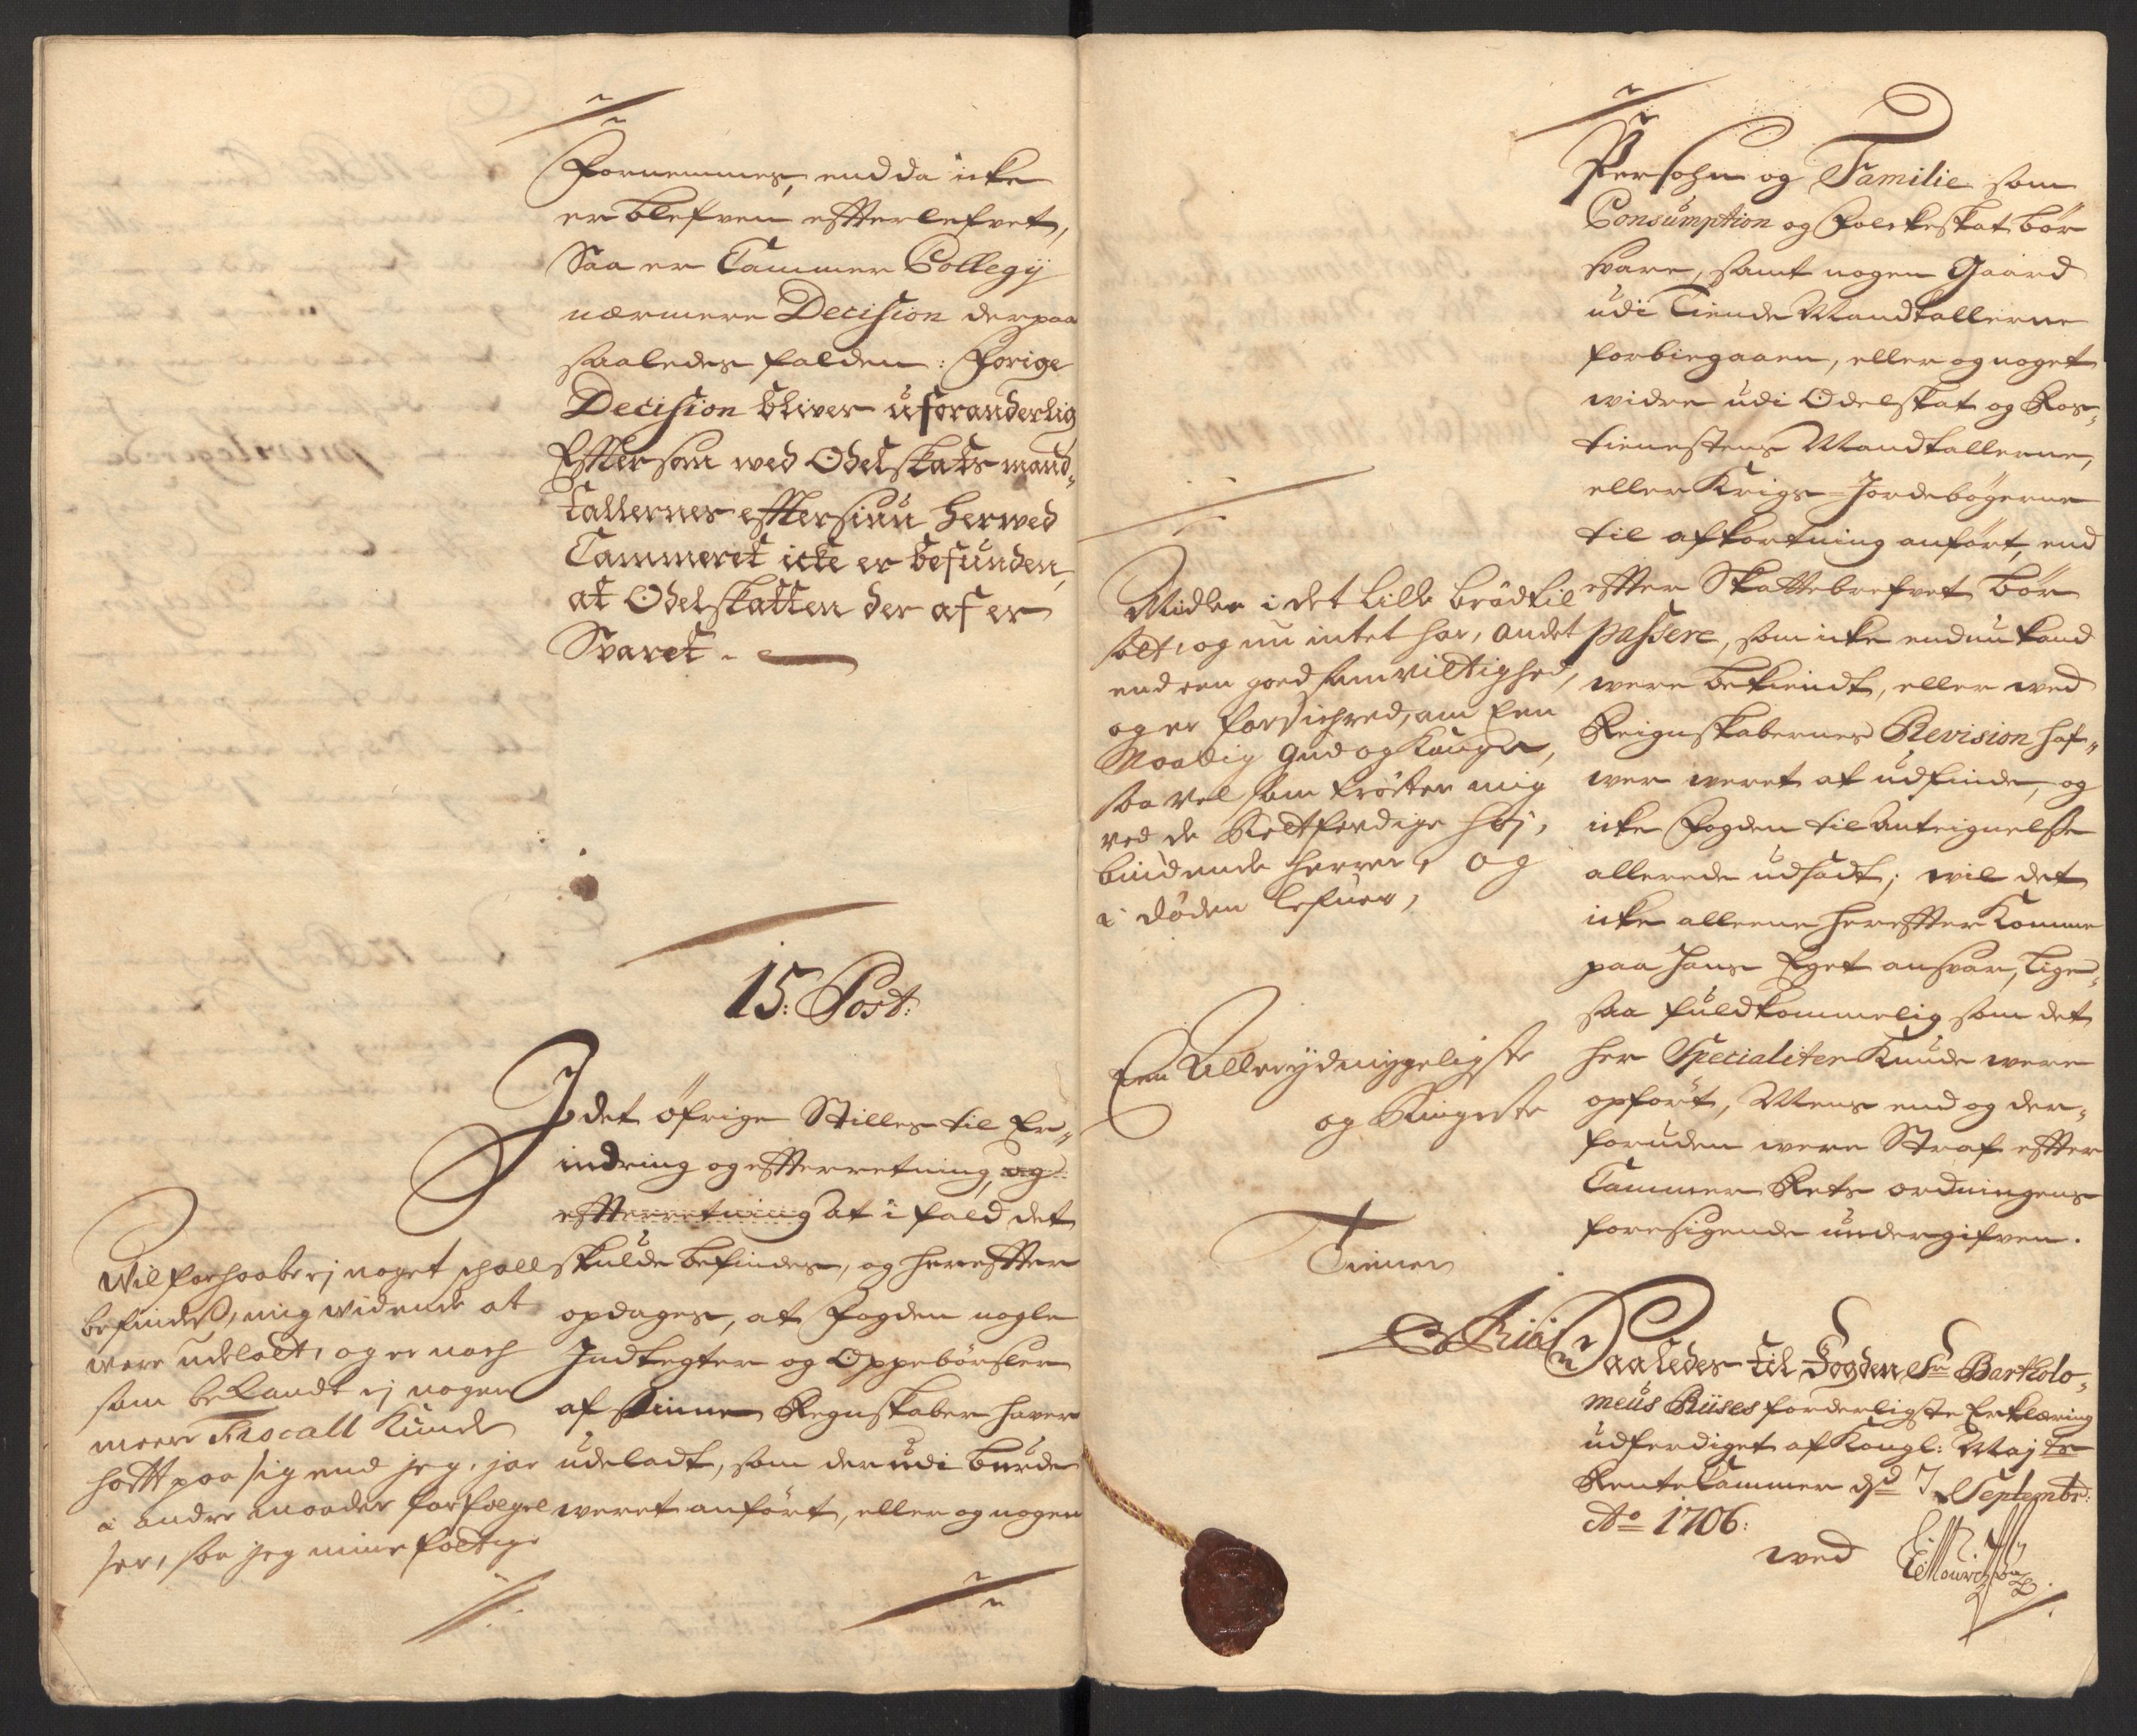 fornemmes, end da icke
er blefven efterlefvet,
Saa er Cammer Collegij
nærmere Decision derpaa
saaledes falden: Forige
Decision bliver uforanderlig
Eftersom wed Odelskats mand-
tallernes eftersiun herwed
Cammeret icke er befunden,
at Odelskatten der af er
Svaret.
15: Post:
J det öfrige Stilles til Er-
indring og efterretning, og
efterretning at i fald det
skulde befindes, og herefter
opdages, at fogden nogle
Indtegter og Oppebörsler
af sinne Regnskaber haver
udeladt, som der udi burde
weret anfört, eller og nogen
Wil forhaabe ej noget schall
befindes, mig vidende at
were udeladt, og er nock
som bekandt ej nogen
meere Kunde
hafft paa sig end jeg, jae
i andre maader forfölgel
ser, saa jeg mine fattige
Persohn og Familie som
Consumption og Folckeskat bör
svare, samt nogen Gaard
udi Tiende Mandtallerne
forbiegaaen, eller og noget
widre udi Odelskat og Ros-
tienestens Mandtallerne,
eller Krigs-Jordebögerne
til afkortning anfört, end
efter Skattebrefvet bör
passere, som icke endnu kand
were bekiendt, eller wed
Reignskabernes Revision haf-
wer weret at udfinde, og
icke fogden til Anteignelse
allerede udsadt; wil det
icke alleene herefter Komme
paa hans Eget answar, lige-
saa fuldkommelig som det
her Specialiter Kunde were
opfört, Mens end og der-
foruden were Straf efter
Cammer Rets ordningens
foresigende undergifven.
Midler i det lille bröd til
satt, og nu intet har, andet
end een goed samvittighed,
og er forsichred, om Een
Naadig Gud og Konge,
saa vel som tröster mig
ved de Retferdige höj,
biudende herrer, og
i döden lefuer,
Een Allerydmygeligste
og Ringeste
Tiener
Saaledes til Fogden Sr Bartholo-
meus Riises forderligste Erklæring
udferdiget af Kongl: Majts
Rente Cammer dd 7 Septembr:
Ao 1706:
wed